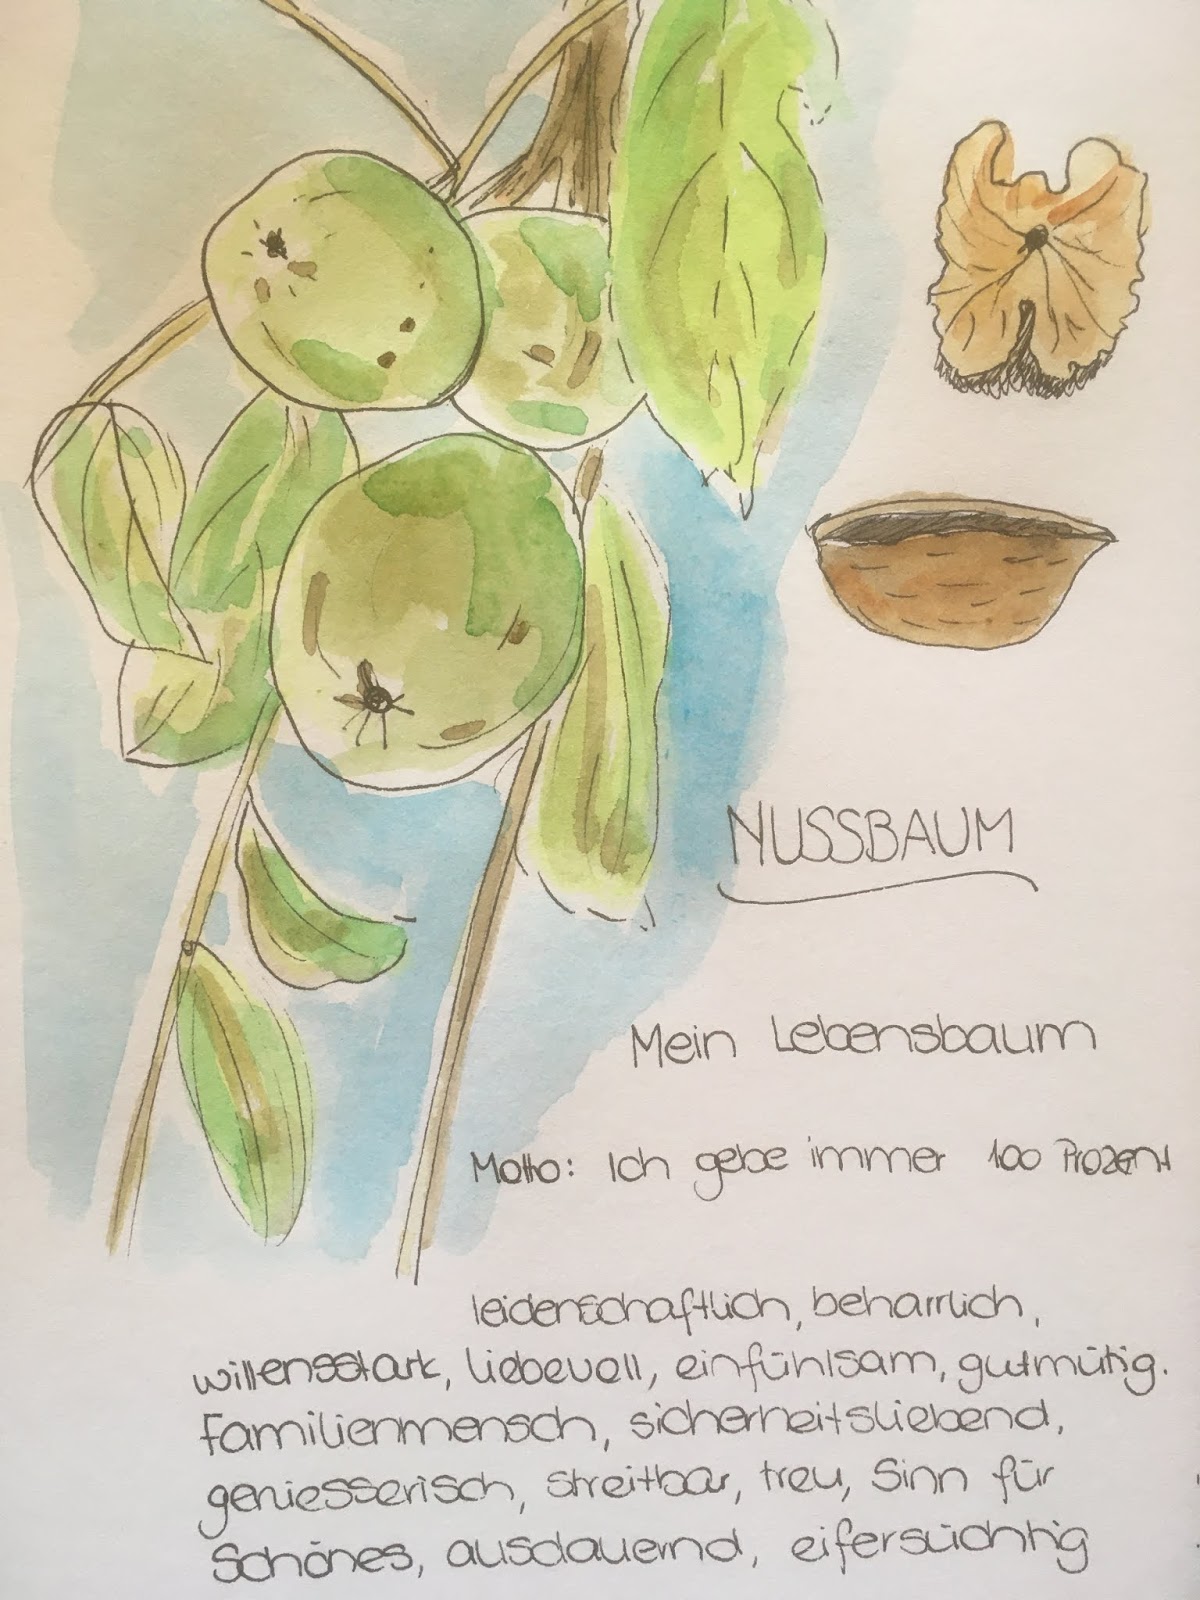 NUSSBAUM
Mein Lebensbaum
Motto: Ich gebe immer 100 Prozent
leidenschaftlich, beharrlich,
willensstark, liebevoll, einfühlsam, gutmütig.
Familienmensch, sicherheitsliebend,
geniesserisch, streitbar, treu, Sinn für
Schönes, ausdauernd, eifersüchtig